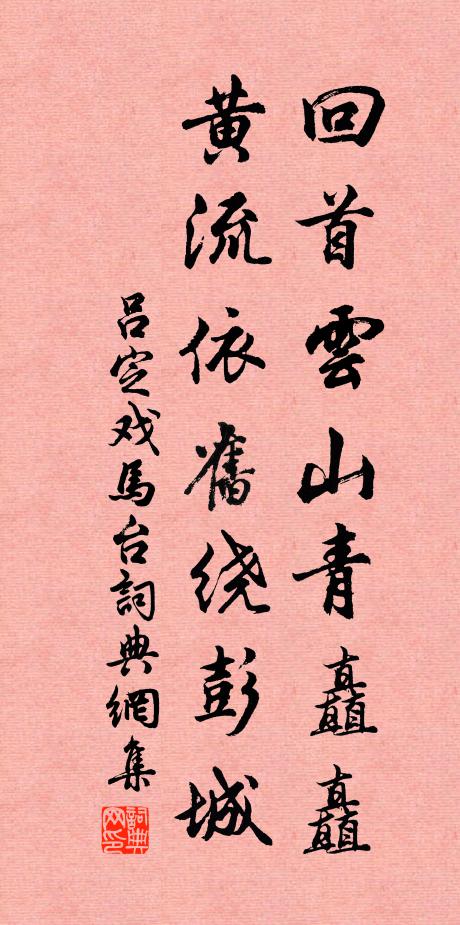 回首雲山青矗矗
黄流依舊绕彭城
吕定戏馬台詞典網集
詞典网印